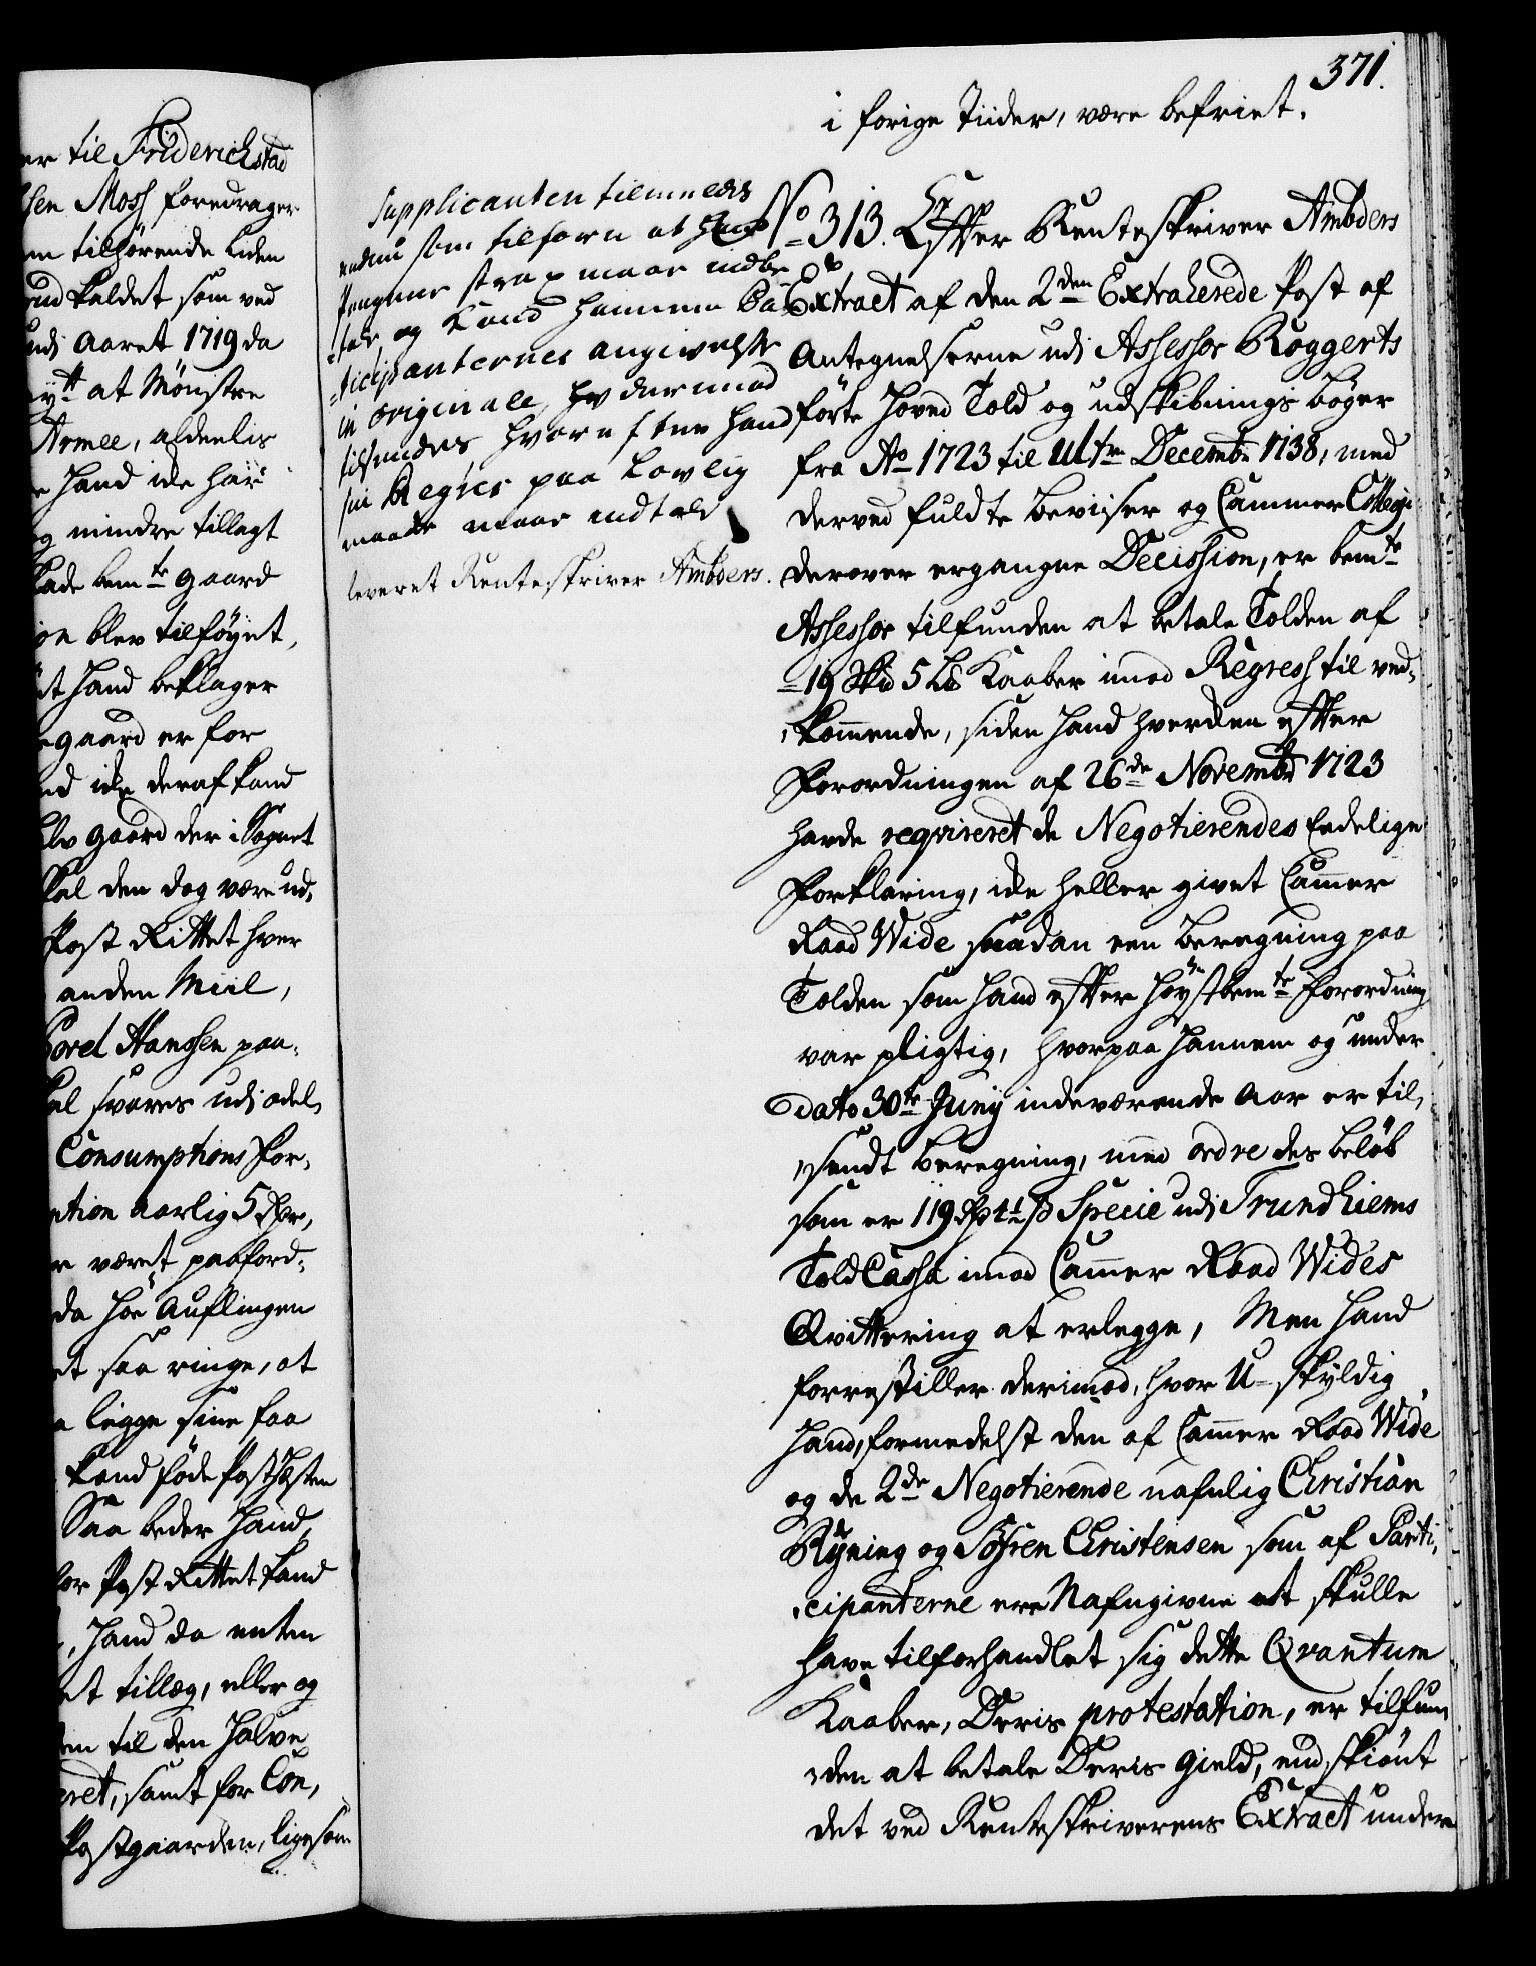 er til Friderichstad
sen Moss foredrager
en tilhørende liden
und kaldet som ved
udj Aaret 1719 da
at Mønstre
Armee, aldeelis
e hand icke har
og mindre tillagt
bemte gaard
on blev tilføyet,
hand beklager
gaard er for
ed icke deraf kand
gaard der i Sognet
kal den dog være ud,
Post Rittet hver
anden Miil,
Hanssen paa,
svares udj adel,
Consumptions For,
ntion aarlig 5 Rdr,
e været paaford,
da høe Auflingen
et saa ringe, at
legge sine faa
kand føde Post Hesten
Saa beder hand
for Post Rittet kand
, hand da enten
et tillæg, eller og
em til den halve
eret, samt for Con,
Postgaarden, ligesom
371.
i forige Tiider, være befriet.
Supplicanten tilmeldes
endnu som tilforn at hand
Pengene strax maae indbe
tale, og kand hannem Par
ticipanternes angivelse
in originale her derimod
tilsendes hvorefter hand
sin Regres paa Lovlig
maade maae indtale
leveret Renteskriver Ambders.
No 313. Efter Renteskriver Ambders
Extract af den 2den Extraherede Post af
Antegnelserne udj Assessor Røggerts
førte Hoved Told og udskibnings bøger
fra Ao 1723 til Ultr Decembr 1738, med
derved fuldte beviiser og Cammer Collegii
derover ergangne Decission, er bemte
Assessor tilfunden at betale Tolden af
19 Sk℔ 5 L℔ Kaaber imod Regress til ved,
kommende, siden hand hverken efter
Forordningen af 26de Novembr 1723
havde reqvireret de Negotierendes Eedelige
Forklaring, icke heller givet Cammer
Raad Wide saadan een beregning paa
Tolden som hand efter høystbemte Forordning
var pligtig, hvorpaa hannem og under
dato 30te Junij indeværende Aar er til,
sendt beregning, med ordre des beløb
som er 119 Rdr 1 ß Specie udj Trundhiems
Told Cassa imod Cammer Raad Wides
Qvittering at erlegge, Men hand
forrestiller derimod, hvor U-skyldig
hand, formedelst den af Cammer Raad Wide
og de 2de Negotierende nafnlig Christian
Ryning og Søfren Christensen som af Parti,
cipanterne ere Nafngivne at skulle
have tilforhandlet sig dette Qvantum
Kaaber, Deris protestation, er tilfun
den at betale Deris gield, endskiønt
det ved Renteskriverens Extract under